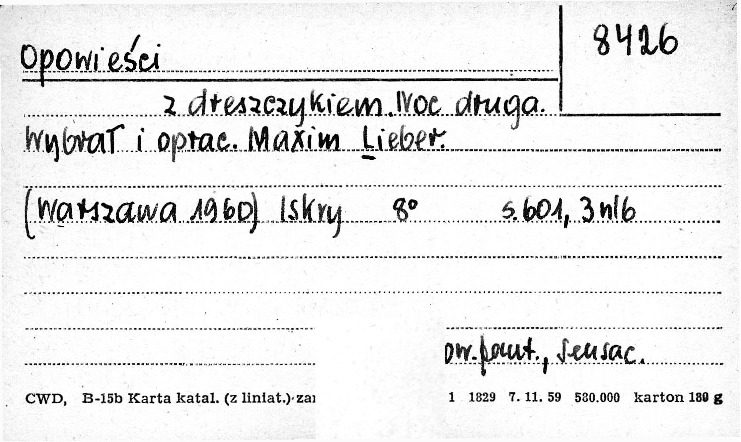 8426
Opowieści
z dreszczykiem. Noc druga.
Wybrał i oprac. Maxim Lieber.
(Warszawa 1960) Iskry 8° s. 601, 3 nlb
ow. fant., sensac.
CWD, B-15b Karta katal. (z liniat.) zai 1 1829 7. 11. 59 580.000 karton 180 g